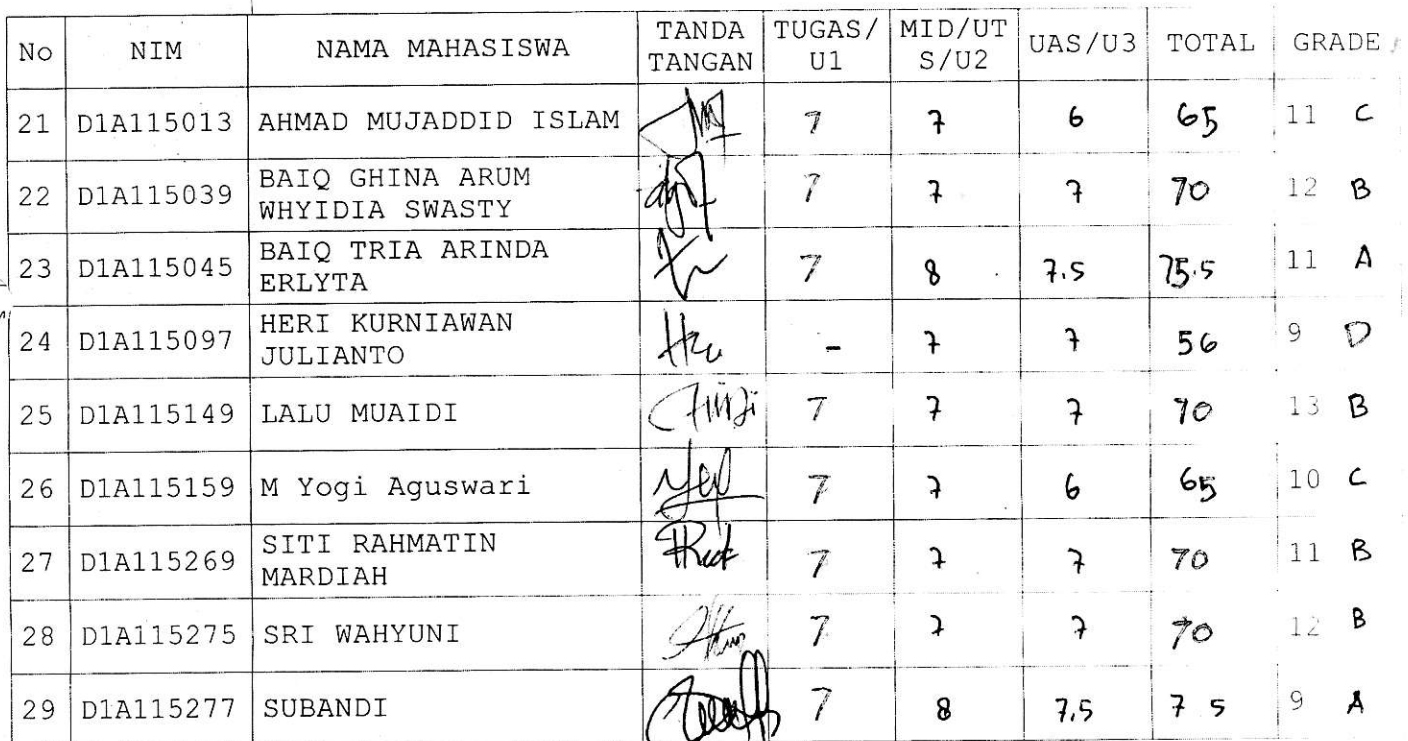 No NIM NAMA MAHASISWA TANDA TANGAN TUGAS/ U1 MID/UT S/U2 UAS/U3 TOTAL GRADE
21 D1A115013 AHMAD MUJADDID ISLAM 7 7 6 65 11 C
22 D1A115039 BAIQ GHINA ARUM WHYIDIA SWASTY 7 7 7 70 12 B
23 D1A115045 BAIQ TRIA ARINDA ERLYTA 7 8 7.5 75.5 11 A
24 D1A115097 HERI KURNIAWAN JULIANTO - 7 7 56 9 D
25 D1A115149 LALU MUAIDI 7 7 7 70 13 B
26 D1A115159 M Yogi Aguswari 7 7 6 65 10 C
27 D1A115269 SITI RAHMATIN MARDIAH 7 7 7 70 11 B
28 D1A115275 SRI WAHYUNI 7 7 7 70 12 B
29 D1A115277 SUBANDI 7 8 7,5 7 5 9 A